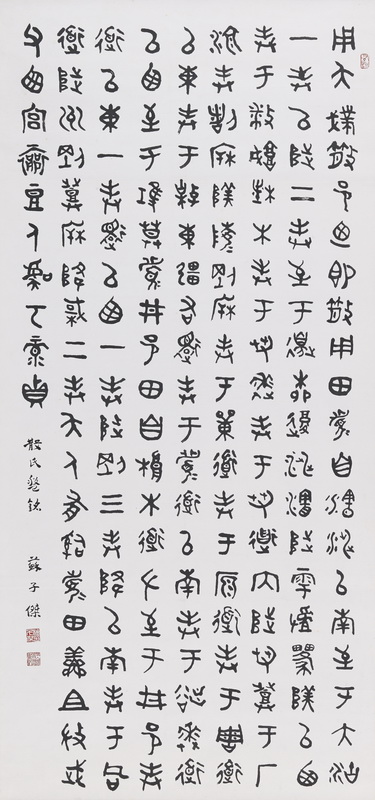 用夨撲散邑乃即散用田眉自瀗涉以南至于大沽
一封以陟二封至于邊柳復涉瀗陟雩陕以西
封于播城楮木封于芻逨封于芻道內陟芻登于厂
湶封割柝陕陵剛柝封于單道封于原道封于周道
以東封于棹東疆右還封于眉道以南封于逨道
以西至于堆莫眉井邑田自桹木道左至于井邑封
道以東一封還以西一封陟剛三封降以南封于同
道陟州剛登柝降棫二封夨人有司眉田鮮且微武
父西宮襄豆人虞丂彔貞
散氏盤銘 蘇子傑